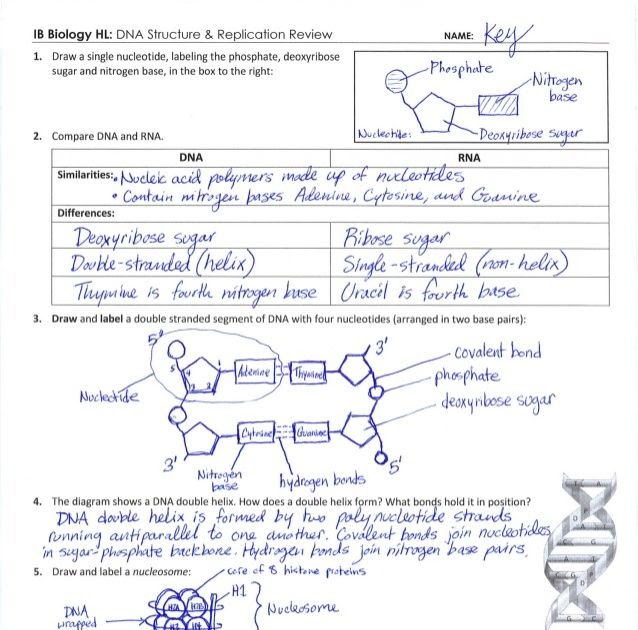 IB Biology HL: DNA Structure & Replication Review
NAME: Key
1. Draw a single nucleotide, labeling the phosphate, deoxyribose
sugar and nitrogen base, in the box to the right:
Phosphate
Nitrogen
base
Nucleotide:
Deoxyribose sugar
2. Compare DNA and RNA.
DNA RNA
Similarities: • Nucleic acid polymers made up of nucleotides
• Contain nitrogen bases Adenine, Cytosine, and Guanine
Differences:
Deoxyribose sugar Ribose sugar
Double-stranded (helix) Single-stranded (non-helix)
Thymine is fourth nitrogen base Uracil is fourth base
3. Draw and label a double stranded segment of DNA with four nucleotides (arranged in two base pairs):
5' 3' covalent bond
5 4 Adenine Thymine phosphate
3 2
Nucleotide deoxyribose sugar
Cytosine Guanine
3' 5'
Nitrogen
base
hydrogen bonds
4. The diagram shows a DNA double helix. How does a double helix form? What bonds hold it in position?
DNA double helix is formed by two polynucleotide strands
running antiparallel to one another. Covalent bonds join nucleotides
in sugar-phosphate backbone. Hydrogen bonds join nitrogen base pairs.
5. Draw and label a nucleosome:
core of 8 histone proteins
H1
Nucleosome
DNA
wrapped
H2A H2B
H3 H4